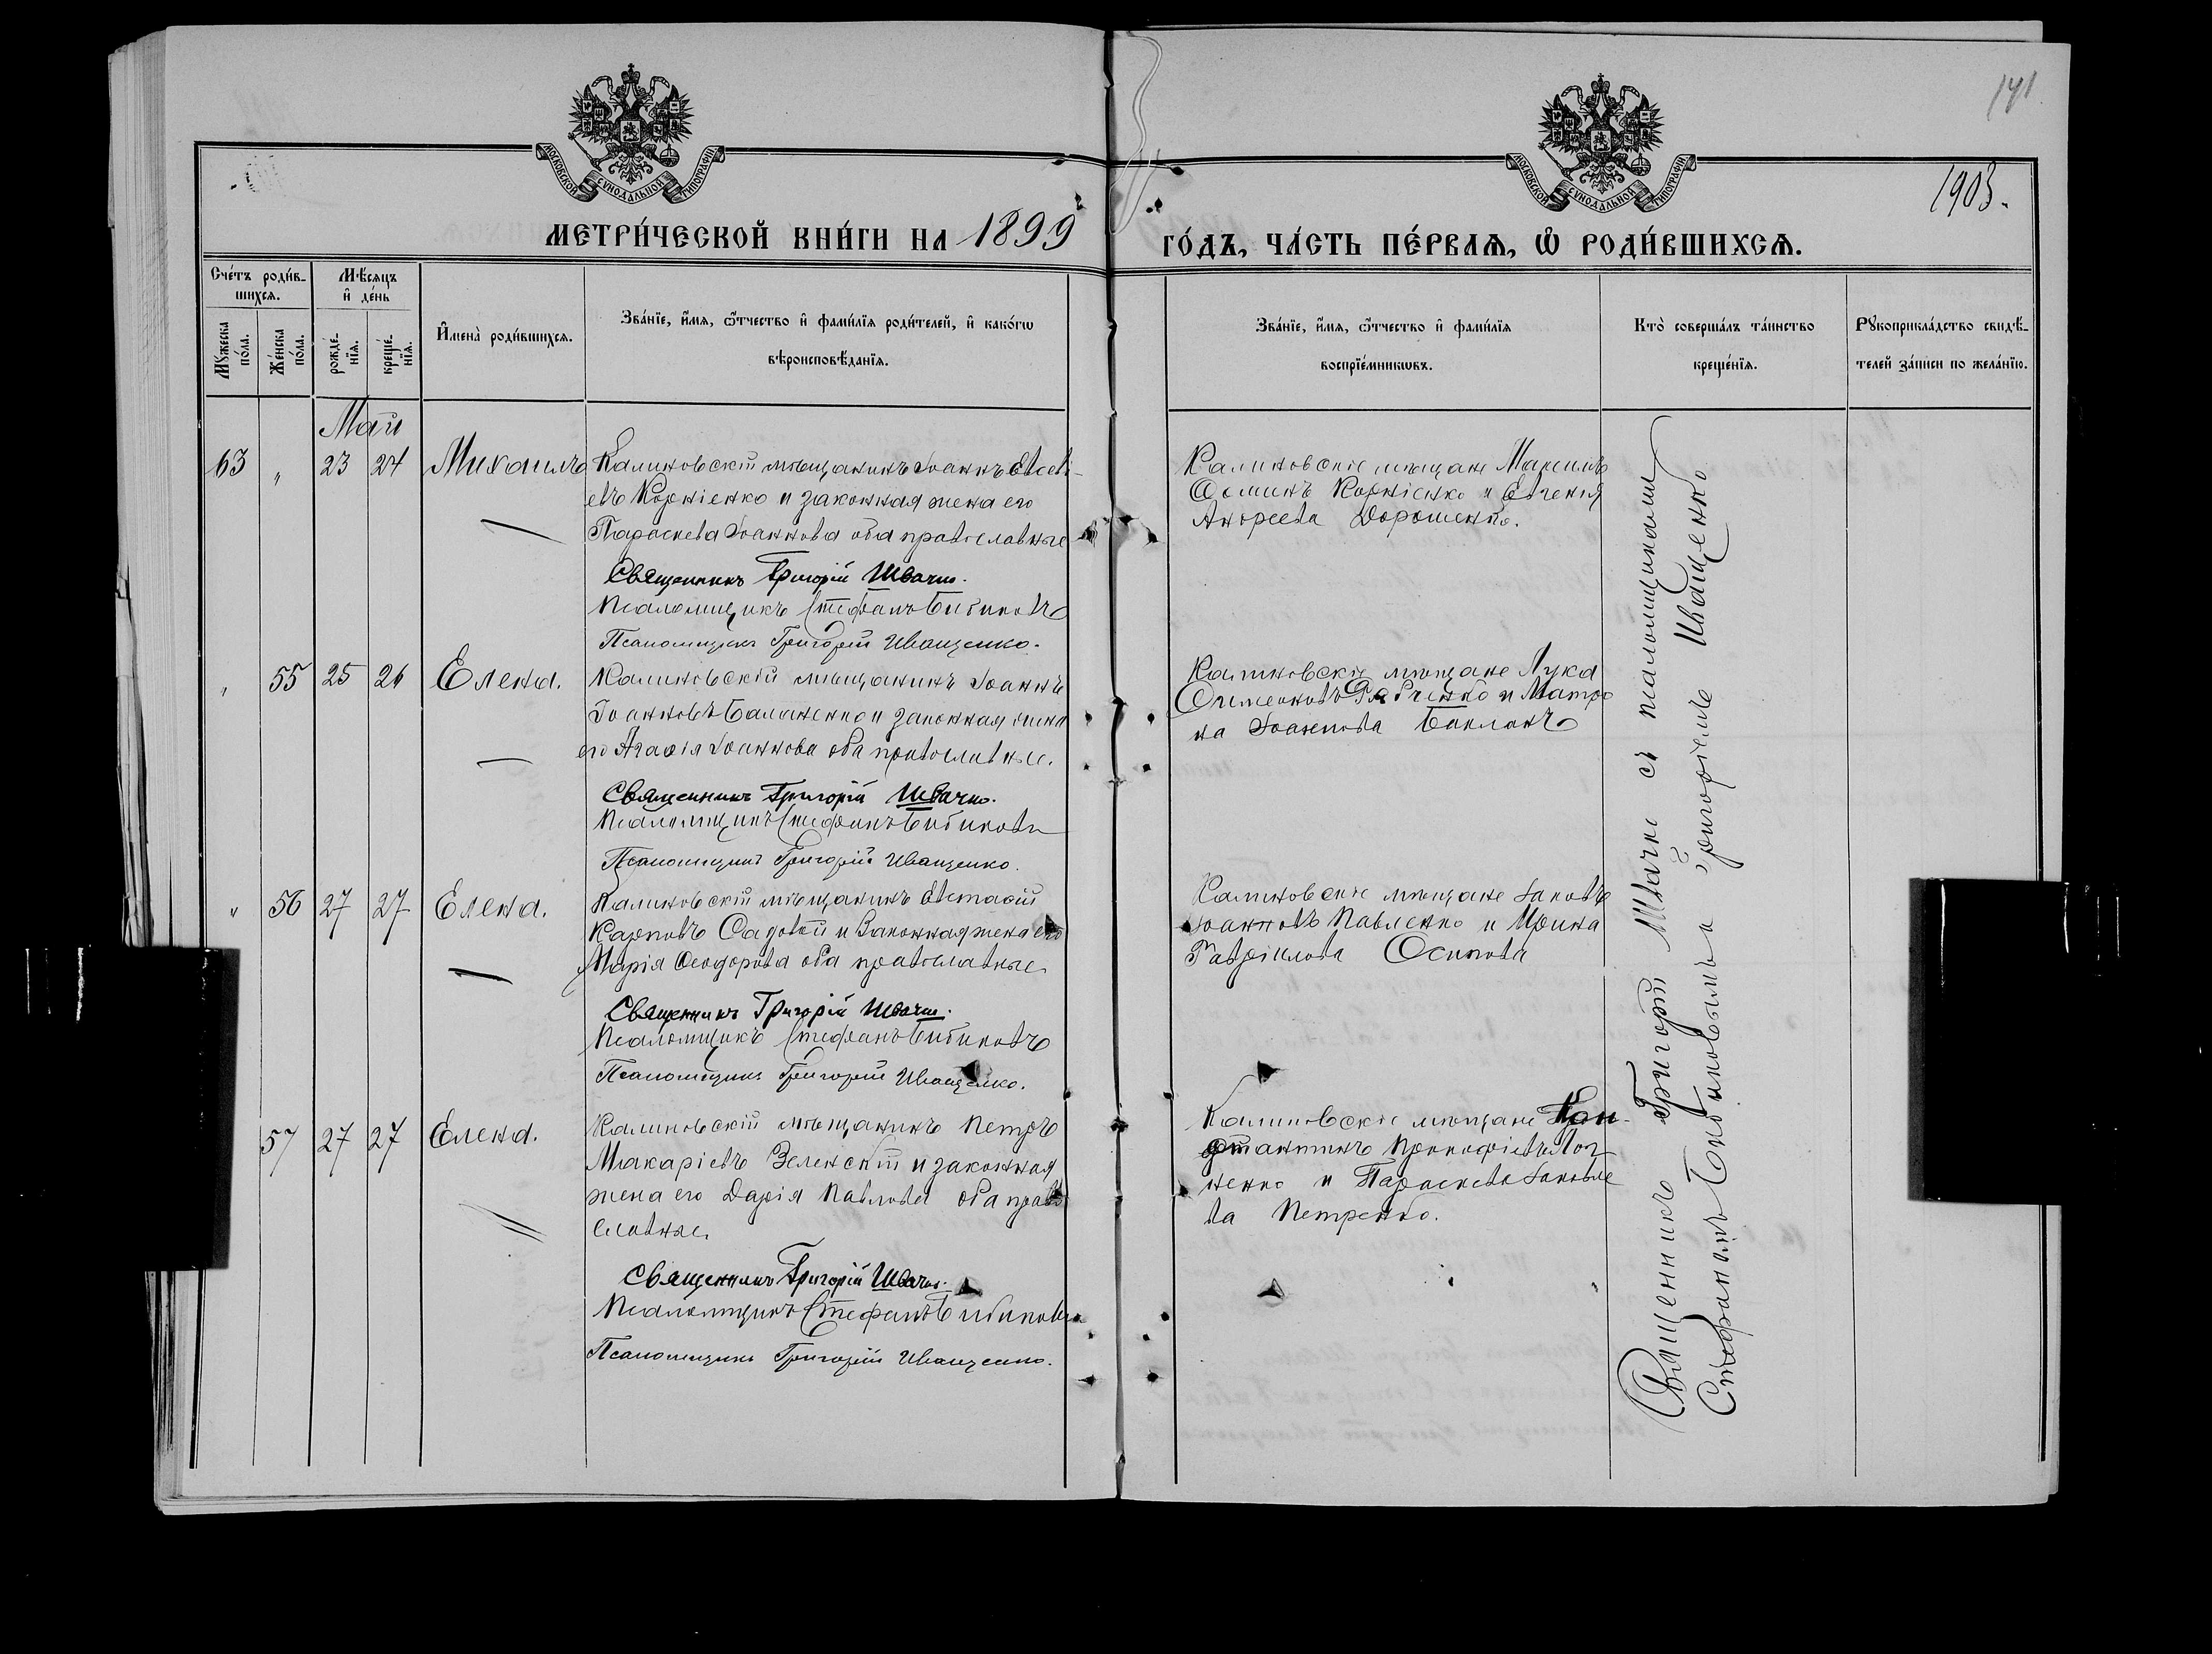 141
1903.
МОСКОВСКОЙ СУНОДАЛЬНОЙ ТИПОГРАФІИ
МОСКОВСКОЙ СУНОДАЛЬНОЙ ТИПОГРАФІИ
МЕТРИ́ЧЕСКОЙ КНИ́ГИ НА 1899 ГО́ДЪ, ЧА́СТЬ ПЕ́РВАѦ, Ѡ РОДИ́ВШИХСѦ.
Сче́тъ роди́вшихсѧ.
Мꙋжеска по́ла.
Же́нска по́ла.
Мѣ́сяцъ и де́нь
рожде́нїѧ.
креще́нїѧ.
И́мена̀ роди́вшихсѧ.
Зва́нїе, и́мѧ, ѻ́тчество и фами́лїѧ роди́телей, и како́гѡ
вѣроисповѣ́данїѧ.
Зва́нїе, и́мѧ, ѻ́тчество и фами́лїѧ
воспрїе́мникѡвъ.
Кто̀ соверша́лъ та́инство
креще́нїѧ.
Рꙋкоприкла́дство свидѣ́-
телей за́писи по жела́нїю.
Май
63 „ 23 24 Михаилъ
Калиновскій мѣщанинъ Іоаннъ Евсеві-
евъ Корніенко и законная жена его
Параскева Іоаннова оба православные
Священникъ Григорій Швачко.
Псаломщикъ Стефанъ Бибиковъ
Псаломщикъ Григорій Иващенко.
Калиновскіе мѣщане Марк
Корніенко и Евгенія
Андреева Дорошенко.
„ 55 25 26 Елена.
Калиновскій мѣщанинъ Іоаннъ
Іоанновъ Балаженко и законная жена
его Агафія Іоаннова оба православные.
Священникъ Григорій Швачко.
Псаломщикъ Стефанъ Бибиковъ
Псаломщикъ Григорій Иващенко.
Калиновскіе мѣщане Лука
Симеоновъ Рябченко и Матро
на Іоаннова Бакланъ
„ 56 27 27 Елена.
Калиновскій мѣщанинъ Евстафій
Карповъ Садовой и Законная жена его
Марія Ѳеодорова оба православные
Священникъ Григорій Швачко.
Псаломщикъ Стефанъ Бибиковъ
Псаломщикъ Григорій Иващенко.
Калиновскіе мѣщане Іаковъ
Іоанновъ Павленко и Ирина
Гавріилова Осипова
57 27 27 Елена.
Калиновскій мѣщанинъ Петръ
Макаріевъ Зеленскій и законная
жена его Дарія Павлова оба право
славные
Священникъ Григорій Швачко.
Псаломщикъ Стефанъ Бибиковъ
Псаломщикъ Григорій Иващенко.
Калиновскіе мѣщане Кон-
стантинъ Прокофіевъ Лог
ненко и Параскева Іаковле
ва Петренко.
Священникъ Григорій Швачко съ псаломщиками
Стефаномъ Бибиковымъ и Григоріемъ Иващенко